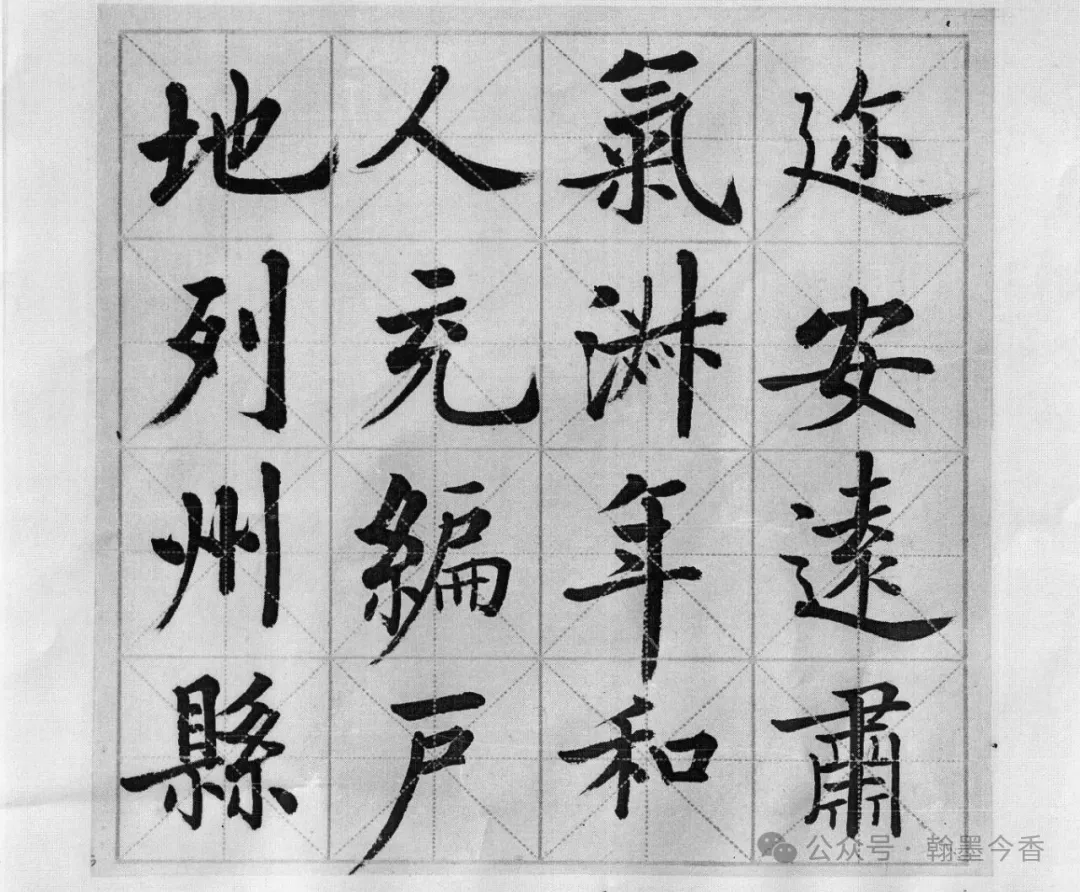 地列州縣
人充編戸
氣淑年和
迩安遠肅
公众号·翰墨今香